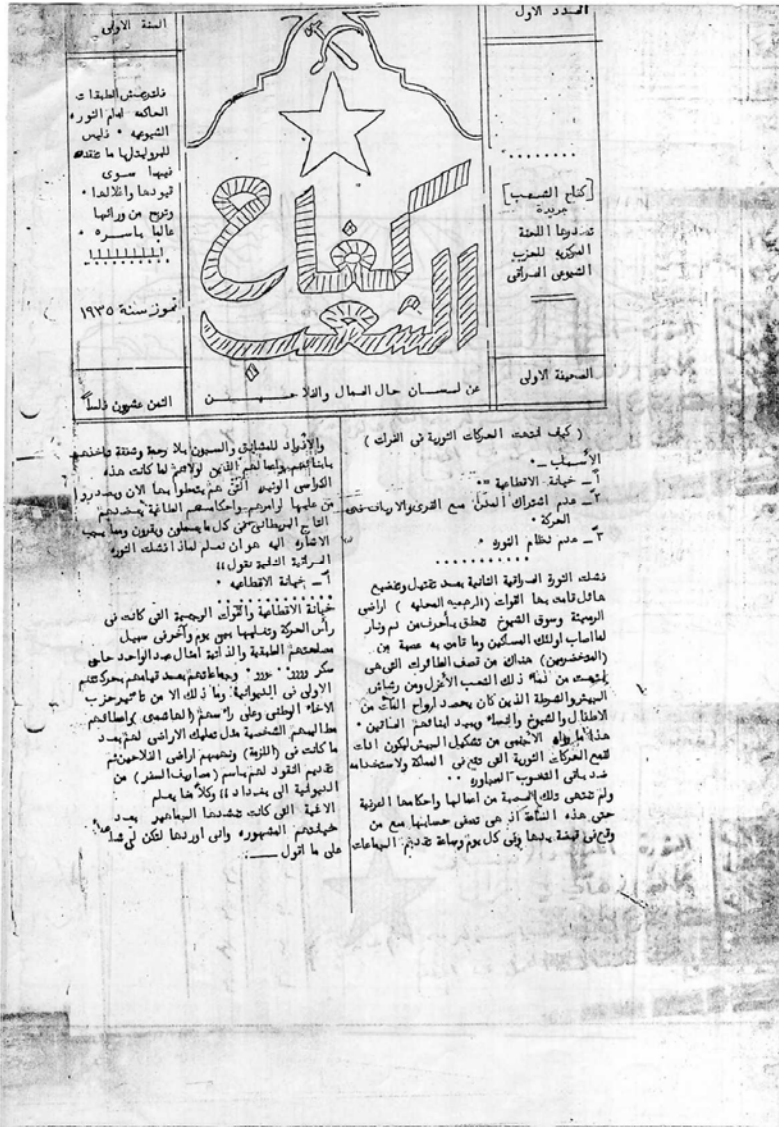 العدد الاول
السنة الاولى
[كفاح الشعب]
جريدة
تصدرها اللجنة
المركزية للحزب
الشيوعي العراقي
الصحيفة الاولى
كفاح
الشعب
عن لسان حال العمال والفلاحين
فلترتعش الطبقات
الحاكمه امام الثوره
الشيوعيه ٠ فليس
للبروليتاريا ما تفقده
فيها سوى
قيودها واغلالها ٠
وتربح من ورائها
عالما باسره ٠
تموز سنة ١٩٣٥
الثمن عشرون فلساً
( كيف قمعت الحركات الثورية في الفرات )
الأسباب ــ ٠
١ً ــ خيانة الاقطاعية ٠
٢ً ــ عدم اشتراك المدن مع القرى والارياف في
الحركة ٠
٣ً ــ عدم نظام الثوره ٠
فشلت الثورة العراقية الثانية بعد تقتيل وتفضيح
هائل قامت بها القوات (الرجعيه المحليه ) اراضي
الرميثة وسوق الشيوخ تنطق بأحرف من دم ونار
لما اصاب اولئك المساكين وما قامت به عصبة من
هناك من قصف الطائرات التي هي
من دماء ذلك الشعب الأعزل ومن رشاش
الجيش والشرطة الذين كان يحصد ارواح المئات من
الاطفال والشيوخ والنساء ويبيد ابناءهم
هذا ما الأجنبي من تشكيل الجيش ليكون اداة
لقمع الحركات الثورية التي تقع في المملكة ولاستخدامه
ضد باقي الشعوب المجاوره ٠٠
ولم تنتهي تلك العصبة من اعمالها واحكامها العرفية
حتى هذه الساعة اذ هي تصفي حسابها مع من
وقع في قبضة يدها وفي كل يوم وساعة تقدم الجماعات
والافراد للمشانق والسجون بلا رحمة وشفقة تأخذهم
بابنائهم واعمالهم الذين لولاهم لما كانت هذه
الكراسي الوثيره التي هم يتمطوا بها الان ويصدروا
من عليها اوامرهم واحكامهم الطاغية يعضدهم
التاج البريطاني في كل ما يعملون ويقررون ومما يجب
الاشاره اليه هو ان نعلم لماذا فشلت الثوره
العراقية الثانية نقول ،،
١ً ــ خيانة الاقطاعيه ٠
خيانة الاقطاعية والقوات الرجعية التي كانت في
رأس الحركة وتغلبها بين يوم وآخر في سبيل
مصلحتهم الطبقية والذاتية امثال عبد الواحد حاجي
سكر ٠ وجماعاتهم بعد قيامهم بحركتهم
الاولى في الديوانية وما ذلك الا من تاثير حزب
الاخاء الوطني وعلى رأسهم (الهاشمي) واعطائهم
مطاليبهم الشخصية مثل تمليك الاراضي لهم بعد
ما كانت في (اللزمة) ونهبهم اراضي الفلاحين ثم
تقديم النقود لهم باسم (مصاريف السفر) من
الديوانية الى بغداد ،، وكلا ُّنا يعلم
الاغنية التي كانت تنشدها الجماهير بعد
خيانتهم المشهوره واني اوردها لتكن لي شاهداً
على ما اقول ــــ :